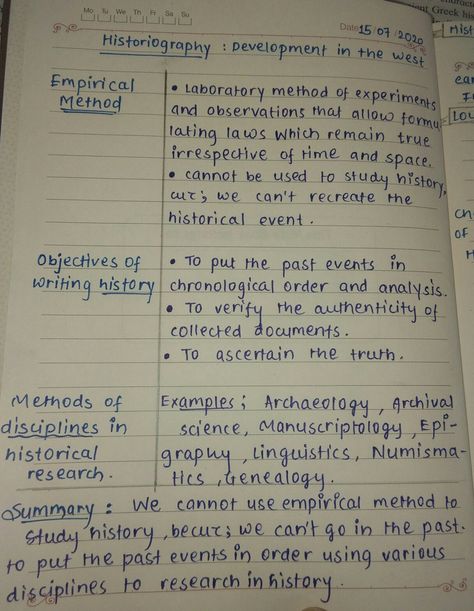 Mo Tu We Th Fr Sa Su
Date 15/07/2020
Historiography : Development in the west
Empirical
Method
• Laboratory method of experiments
and observations that allow formu
lating laws which remain true
irrespective of time and space.
• cannot be used to study history,
cuz; we can't recreate the
historical event.
Objectives of
writing history
• To put the past events in
chronological order and analysis.
• To verify the authenticity of
collected documents.
• To ascertain the truth.
Methods of
disciplines in
historical
research.
Examples; Archaeology, Archival
science, Manuscriptology, Epi-
graphy, Linguistics, Numisma-
tics, Genealogy.
Summary : We cannot use empirical method to
study history, becuz; we can't go in the past.
to put the past events in order using various
disciplines to research in history.
ient Greek his
Hist
ear
Lou
ch
of